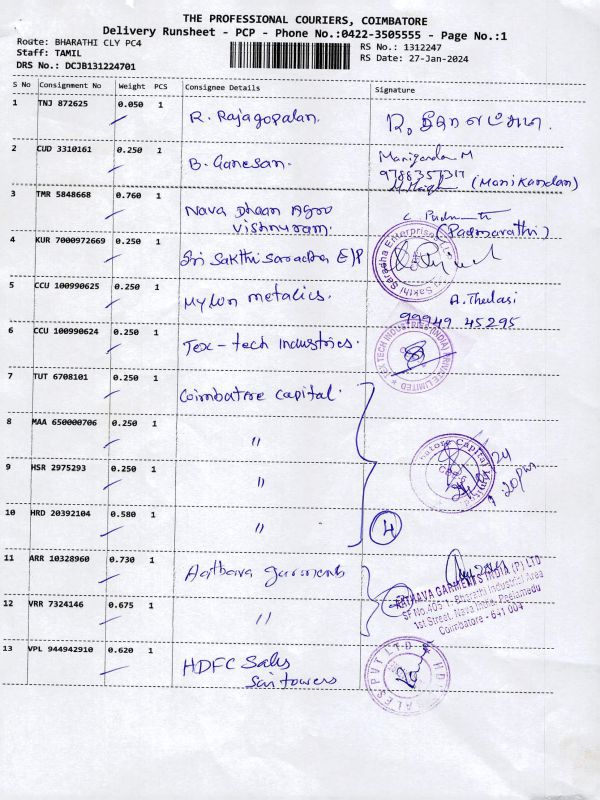 THE PROFESSIONAL COURIERS, COIMBATORE
Delivery Runsheet - PCP - Phone No.:0422-3505555 - Page No.:1
Route: BHARATHI CLY PC4
Staff: TAMIL
DRS No.: DCJB131224701
RS No.: 1312247
RS Date: 27-Jan-2024
S No Consignment No Weight PCS Consignee Details Signature
1 TNJ 872625 0.050 1 R. Rajagopalan.
2 CUD 3310161 0.250 1 B. Ganesan. Manigandan M
(Manikandan)
3 TMR 5848668 0.760 1 Nava Dhaan Agro
Vishnuram. (Padmarathi)
4 KUR 7000972669 0.250 1 Sri Sakthi Saradha E/P
5 CCU 100990625 0.250 1 Mylon metalics. A. Thulasi
99949 45295
6 CCU 100990624 0.250 1 Tex-tech Industries.
TEX TECH INDUSTRIES (INDIA) PRIVATE LIMITED
7 TUT 6708101 0.250 1 Coimbatore Capital.
8 MAA 650000706 0.250 1 "
9 HSR 2975293 0.250 1 "
10 HRD 20392104 0.580 1 " 4
11 ARR 10328960 0.730 1 Aathava garments
AATHAVA GARMENTS INDIA (P) LTD
SF No.405/1, Bharathi Industrial Area
1st Street, Nava India, Peelamedu
Coimbatore - 641 004
12 VRR 7324146 0.675 1 "
13 VPL 944942910 0.620 1 HDFC Sales
Sai towers